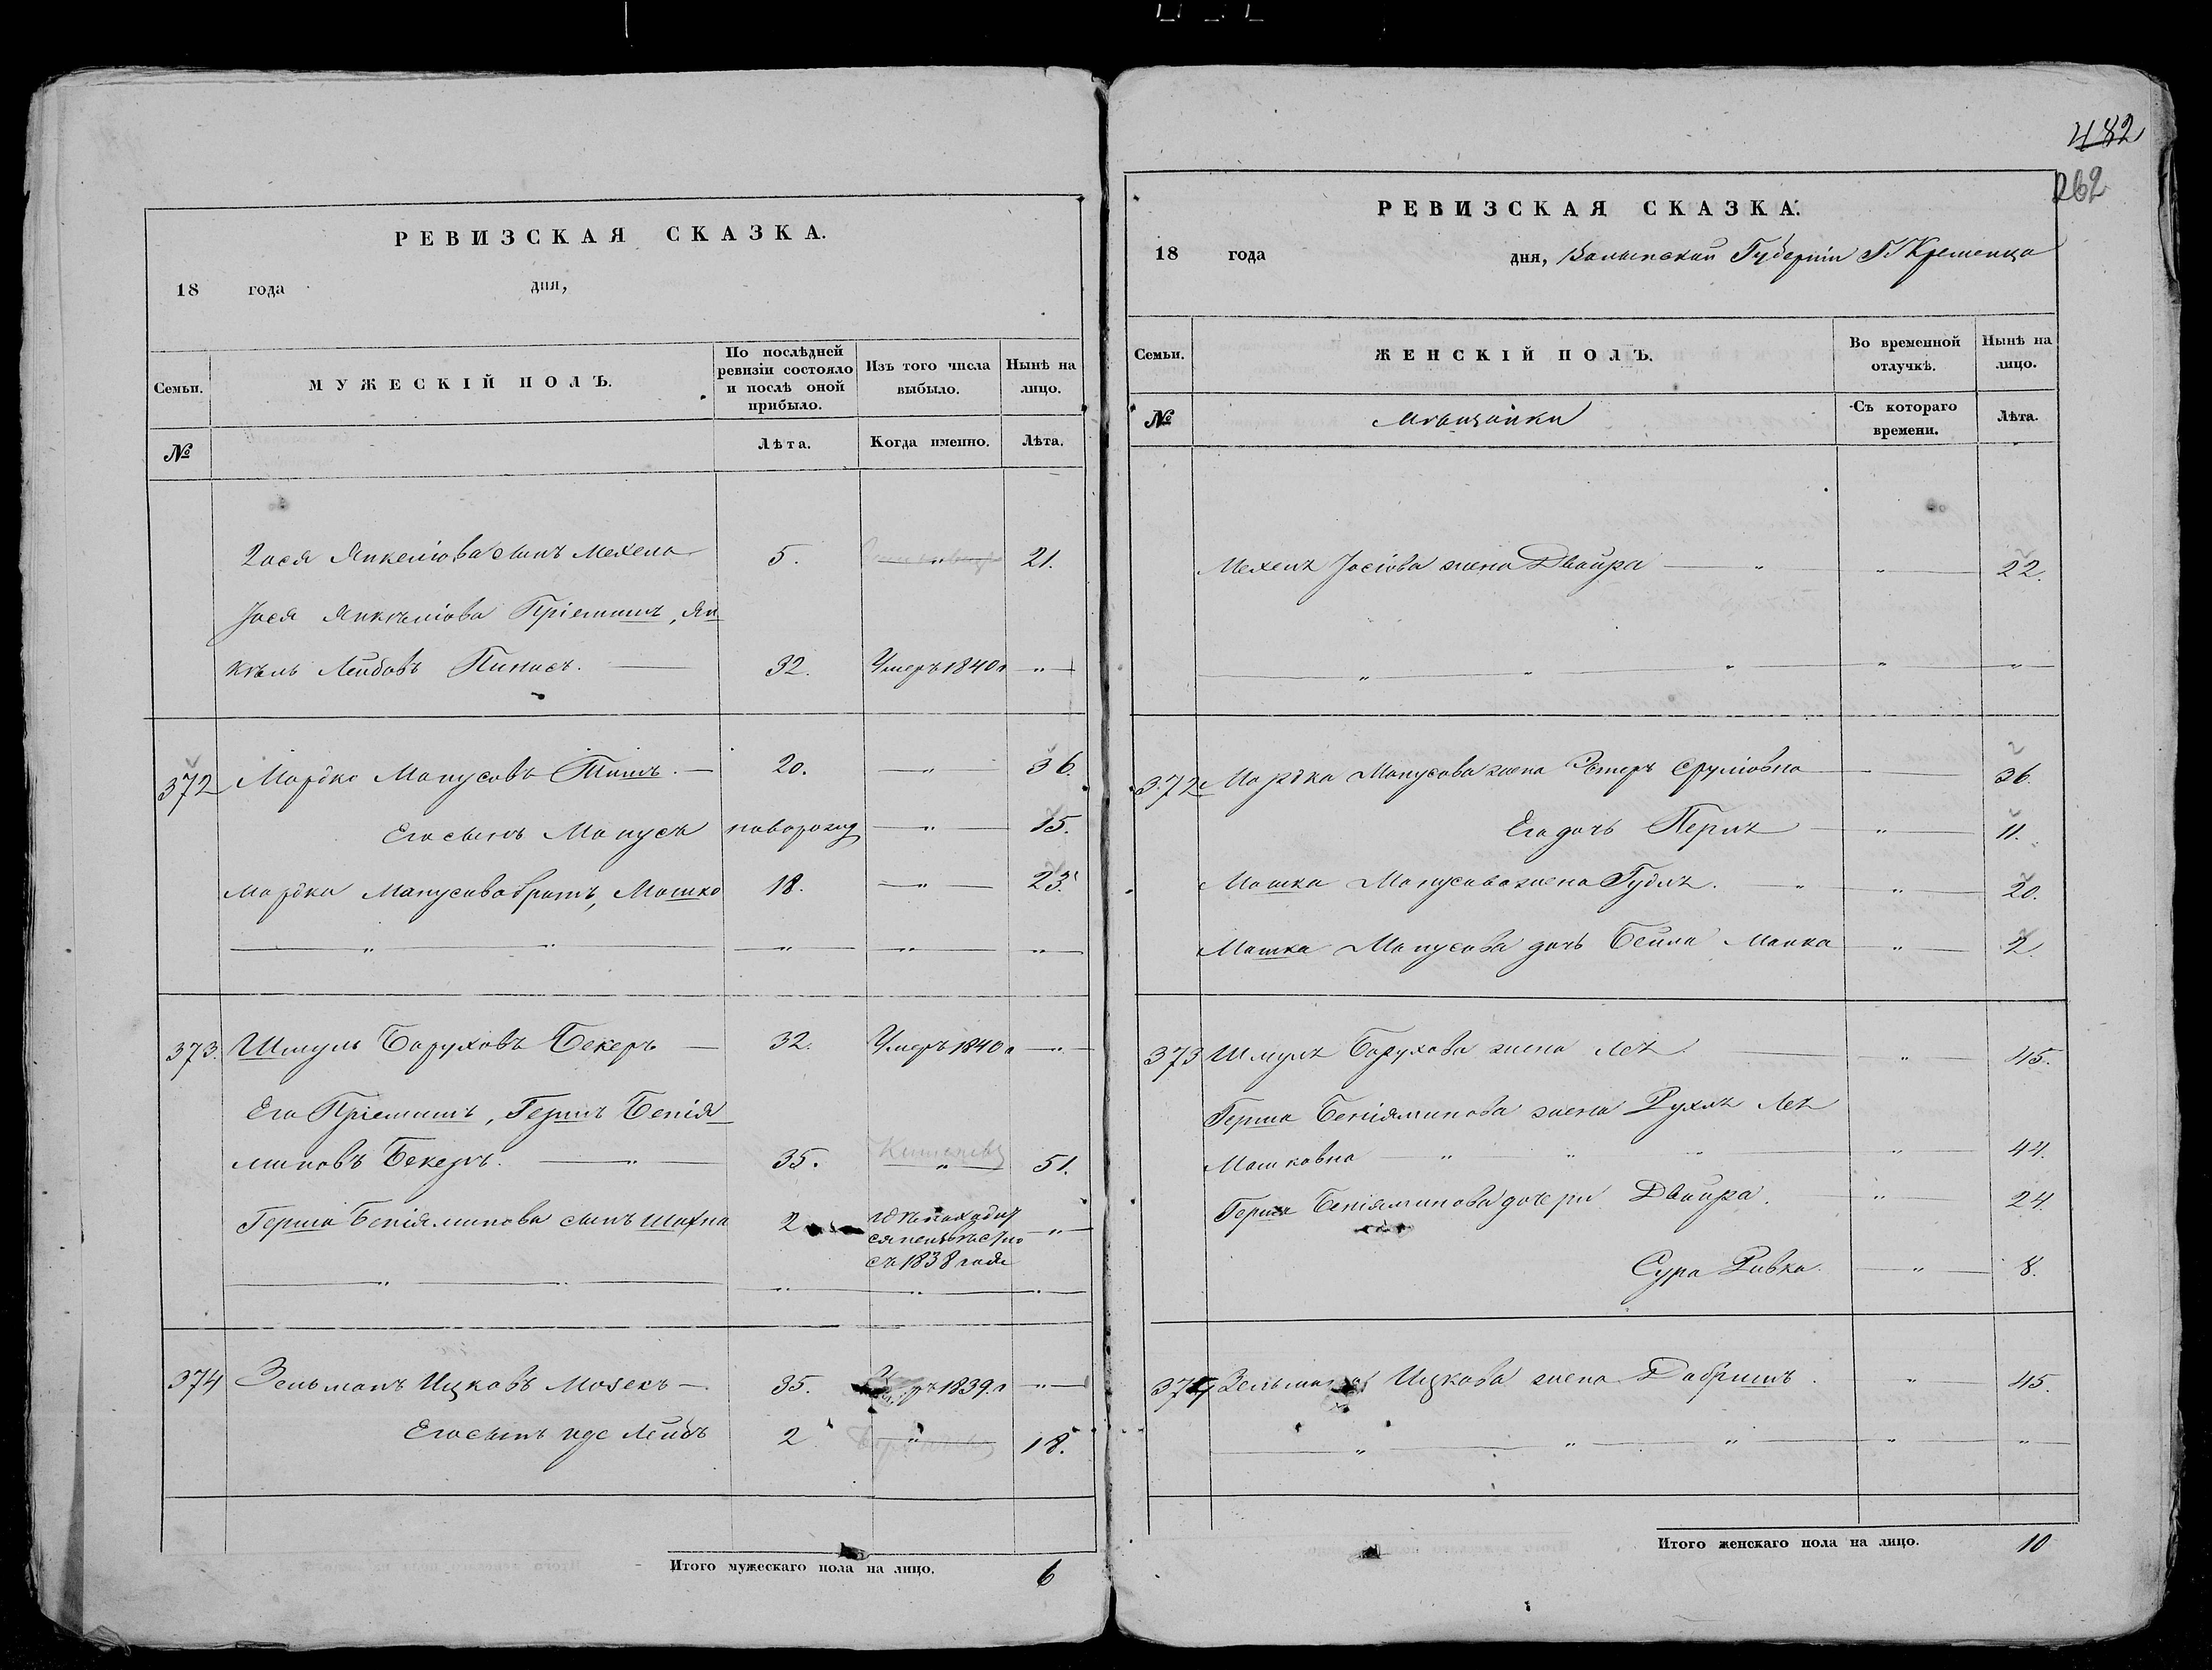 482
262
РЕВИЗСКАЯ СКАЗКА.
18 года дня,
Семьи.
МУЖЕСКІЙ ПОЛЪ.
По послѣдней ревизіи состояло и послѣ оной прибыло.
Изъ того числа выбыло.
Нынѣ на лицо.
№
Лѣта.
Когда именно.
Лѣта.
Іося Янкеліова сынъ Мехель 5. " 21.
Іося Янкѣліова Пріемышъ, Ян
кѣль Лейбовъ Пинасъ. 32. Умеръ 1840 г "
372 Мордко Манусовъ Тышъ. 20. " 36.
Его сынъ Манусъ новорожд " 15.
Мордка Манусова братъ, Мошко 18. " 23.
" " " " "
373. Шмуль Боруховъ Бекеръ 32. Умеръ 1840 г "
Его Пріемышъ, Гершъ Бенія
миновъ Бекеръ. " 35. " 51.
Герша Беніяминова сынъ Шахна 2 гдѣ находит
ся неизвѣстно "
съ 1838 года
" " " " "
374 Зельманъ Ицковъ Мозекъ 35. 1839. г "
Его сынъ Иде Лейбъ 2 " 18.
Итого мужескаго пола на лицо. 6
РЕВИЗСКАЯ СКАЗКА.
18 года дня, Волынской Губерніи Г. Кременца
Семьи.
ЖЕНСКІЙ ПОЛЪ.
Во временной отлучкѣ.
Нынѣ на лицо.
№
Мѣщанки
Съ котораго времени.
Лѣта.
Мехеля Іосіова жена Двойра " " 22.
" " " " "
372 Мордка Манусова жена Эстеръ Сруліовна 36.
Его дочь Перля " 11.
Мошка Манусова жена Гудля. " " 20.
Мошка Манусова дочь Бейла Манка " 2.
373 Шмуля Борухова жена Лея. " 45.
Герша Беніяминова жена Рухля Лея
Мошковна " " " " 44.
Герша Беніяминова дочери Двойра. " 24.
Сура Ривка. " 8.
374 Зельмана Ицкова жена Добришъ. " 45.
" " " " "
Итого женскаго пола на лицо. 10